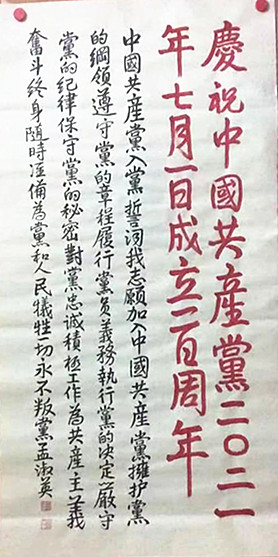 慶祝中國共産黨二〇二一
年七月一日成立一百周年
中國共産黨入黨誓词我志願加入中國共産黨擁护黨
的綱領遵守黨的章程履行黨员義務執行黨的决定嚴守
黨的纪律保守黨的秘密對黨忠诚積极工作為共産主義
奮斗终身隨時准備為黨和人民犧牲一切永不叛黨孟淑英